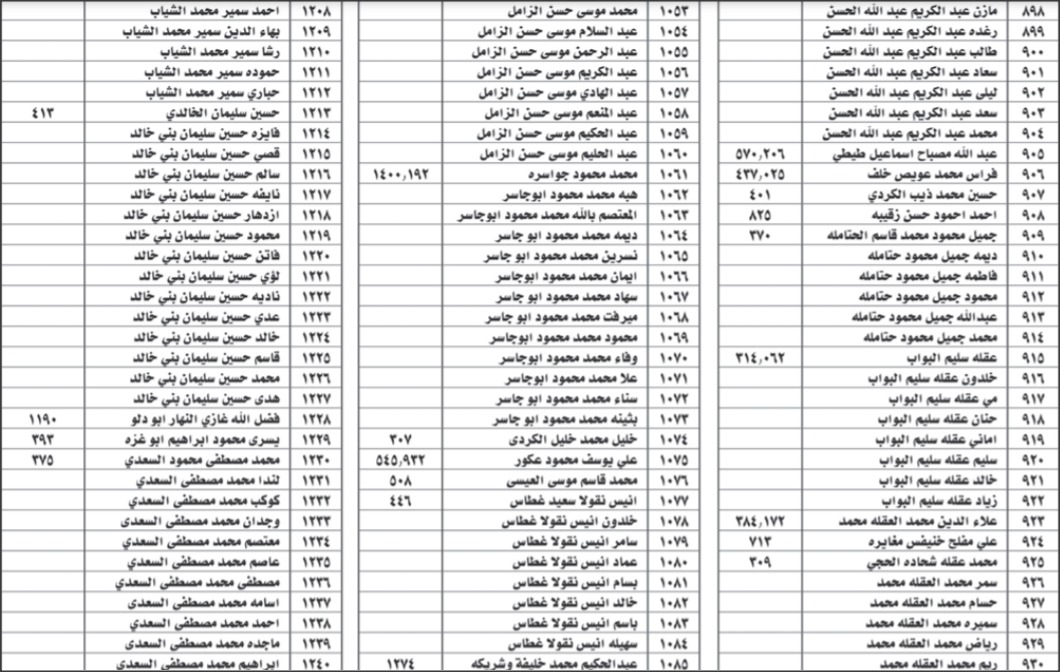 ٨٩٨ مازن عبد الكريم عبد الله الحسن
٨٩٩ رغده عبد الكريم عبد الله الحسن
٩٠٠ طالب عبد الكريم عبد الله الحسن
٩٠١ سعاد عبد الكريم عبد الله الحسن
٩٠٢ ليلى عبد الكريم عبد الله الحسن
٩٠٣ سعد عبد الكريم عبد الله الحسن
٩٠٤ محمد عبد الكريم عبد الله الحسن
٩٠٥ عبد الله مصباح اسماعيل طيطي ٥٧٠,٢٠٦
٩٠٦ فراس محمد عويص خلف ٤٣٧,٠٢٥
٩٠٧ حسين محمد ذيب الكردي ٤٠١
٩٠٨ احمد احمود حسن زقيبه ٨٢٥
٩٠٩ جميل محمود محمد قاسم الحتامله ٣٧٠
٩١٠ ديمه جميل محمود حتامله
٩١١ فاطمه جميل محمود حتامله
٩١٢ محمود جميل محمود حتامله
٩١٣ عبدالله جميل محمود حتامله
٩١٤ محمد جميل محمود حتامله
٩١٥ عقله سليم البواب ٣١٤,٠٦٢
٩١٦ خلدون عقله سليم البواب
٩١٧ مي عقله سليم البواب
٩١٨ حنان عقله سليم البواب
٩١٩ اماني عقله سليم البواب
٩٢٠ سليم عقله سليم البواب
٩٢١ خالد عقله سليم البواب
٩٢٢ زياد عقله سليم البواب
٩٢٣ علاء الدين محمد العقله محمد ٣٨٤,١٧٢
٩٢٤ علي مفلح خنيفس مغايره ٧١٣
٩٢٥ محمد عقله شحاده الحجي ٣٠٩
٩٢٦ سمر محمد العقله محمد
٩٢٧ حسام محمد العقله محمد
٩٢٨ سميره محمد العقله محمد
٩٢٩ رياض محمد العقله محمد
٩٣٠ ريم محمد العقله محمد
١٠٥٣ محمد موسى حسن الزامل
١٠٥٤ عبد السلام موسى حسن الزامل
١٠٥٥ عبد الرحمن موسى حسن الزامل
١٠٥٦ عبد الكريم موسى حسن الزامل
١٠٥٧ عبد الهادي موسى حسن الزامل
١٠٥٨ عبد المنعم موسى حسن الزامل
١٠٥٩ عبد الحكيم موسى حسن الزامل
١٠٦٠ عبد الحليم موسى حسن الزامل
١٠٦١ محمد محمود جواسره ١٤٠٠,١٩٢
١٠٦٢ هبه محمد محمود ابوجاسر
١٠٦٣ المعتصم بالله محمد محمود ابوجاسر
١٠٦٤ ديمه محمد محمود ابو جاسر
١٠٦٥ نسرين محمد محمود ابو جاسر
١٠٦٦ ايمان محمد محمود ابوجاسر
١٠٦٧ سهاد محمد محمود ابو جاسر
١٠٦٨ ميرفت محمد محمود ابو جاسر
١٠٦٩ محمود محمد محمود ابو جاسر
١٠٧٠ وفاء محمد محمود ابوجاسر
١٠٧١ علا محمد محمود ابوجاسر
١٠٧٢ سناء محمد محمود ابو جاسر
١٠٧٣ بثينه محمد محمود ابو جاسر
١٠٧٤ خليل محمد خليل الكردى ٣٠٧
١٠٧٥ علي يوسف محمود عكور ٥٤٥,٩٣٢
١٠٧٦ محمد قاسم موسى العيسى ٥٠٨
١٠٧٧ انيس نقولا سعيد غطاس ٤٤٦
١٠٧٨ خلدون انيس نقولا غطاس
١٠٧٩ سامر انيس نقولا غطاس
١٠٨٠ عماد انيس نقولا غطاس
١٠٨١ بسام انيس نقولا غطاس
١٠٨٢ خالد انيس نقولا غطاس
١٠٨٣ باسم انيس نقولا غطاس
١٠٨٤ سهيله انيس نقولا غطاس
١٠٨٥ عبدالحكيم محمد خليفة وشريكه ١٢٧٤
١٢٠٨ احمد سمير محمد الشياب
١٢٠٩ بهاء الدين سمير محمد الشياب
١٢١٠ رشا سمير محمد الشياب
١٢١١ حموده سمير محمد الشياب
١٢١٢ حباري سمير محمد الشياب
١٢١٣ حسين سليمان الخالدي ٤١٣
١٢١٤ فايزه حسين سليمان بني خالد
١٢١٥ قصي حسين سليمان بني خالد
١٢١٦ سالم حسين سليمان بني خالد
١٢١٧ نايفه حسين سليمان بني خالد
١٢١٨ ازدهار حسين سليمان بني خالد
١٢١٩ محمود حسين سليمان بني خالد
١٢٢٠ فاتن حسين سليمان بني خالد
١٢٢١ لؤي حسين سليمان بني خالد
١٢٢٢ ناديه حسين سليمان بني خالد
١٢٢٣ عدي حسين سليمان بني خالد
١٢٢٤ خالد حسين سليمان بني خالد
١٢٢٥ قاسم حسين سليمان بني خالد
١٢٢٦ محمد حسين سليمان بني خالد
١٢٢٧ هدى حسين سليمان بني خالد
١٢٢٨ فضل الله غازي النهار ابو دلو ١١٩٠
١٢٢٩ يسرى محمود ابراهيم ابو غزه ٣٩٣
١٢٣٠ محمد مصطفى محمود السعدي ٣٧٥
١٢٣١ لندا محمد مصطفى السعدي
١٢٣٢ كوكب محمد مصطفى السعدي
١٢٣٣ وجدان محمد مصطفى السعدى
١٢٣٤ معتصم محمد مصطفى السعدي
١٢٣٥ عاصم محمد مصطفى السعدي
١٢٣٦ مصطفى محمد مصطفى السعدي
١٢٣٧ اسامه محمد مصطفى السعدي
١٢٣٨ احمد محمد مصطفى السعدي
١٢٣٩ ماجده محمد مصطفى السعدي
١٢٤٠ ابراهيم محمد مصطفى السعدي